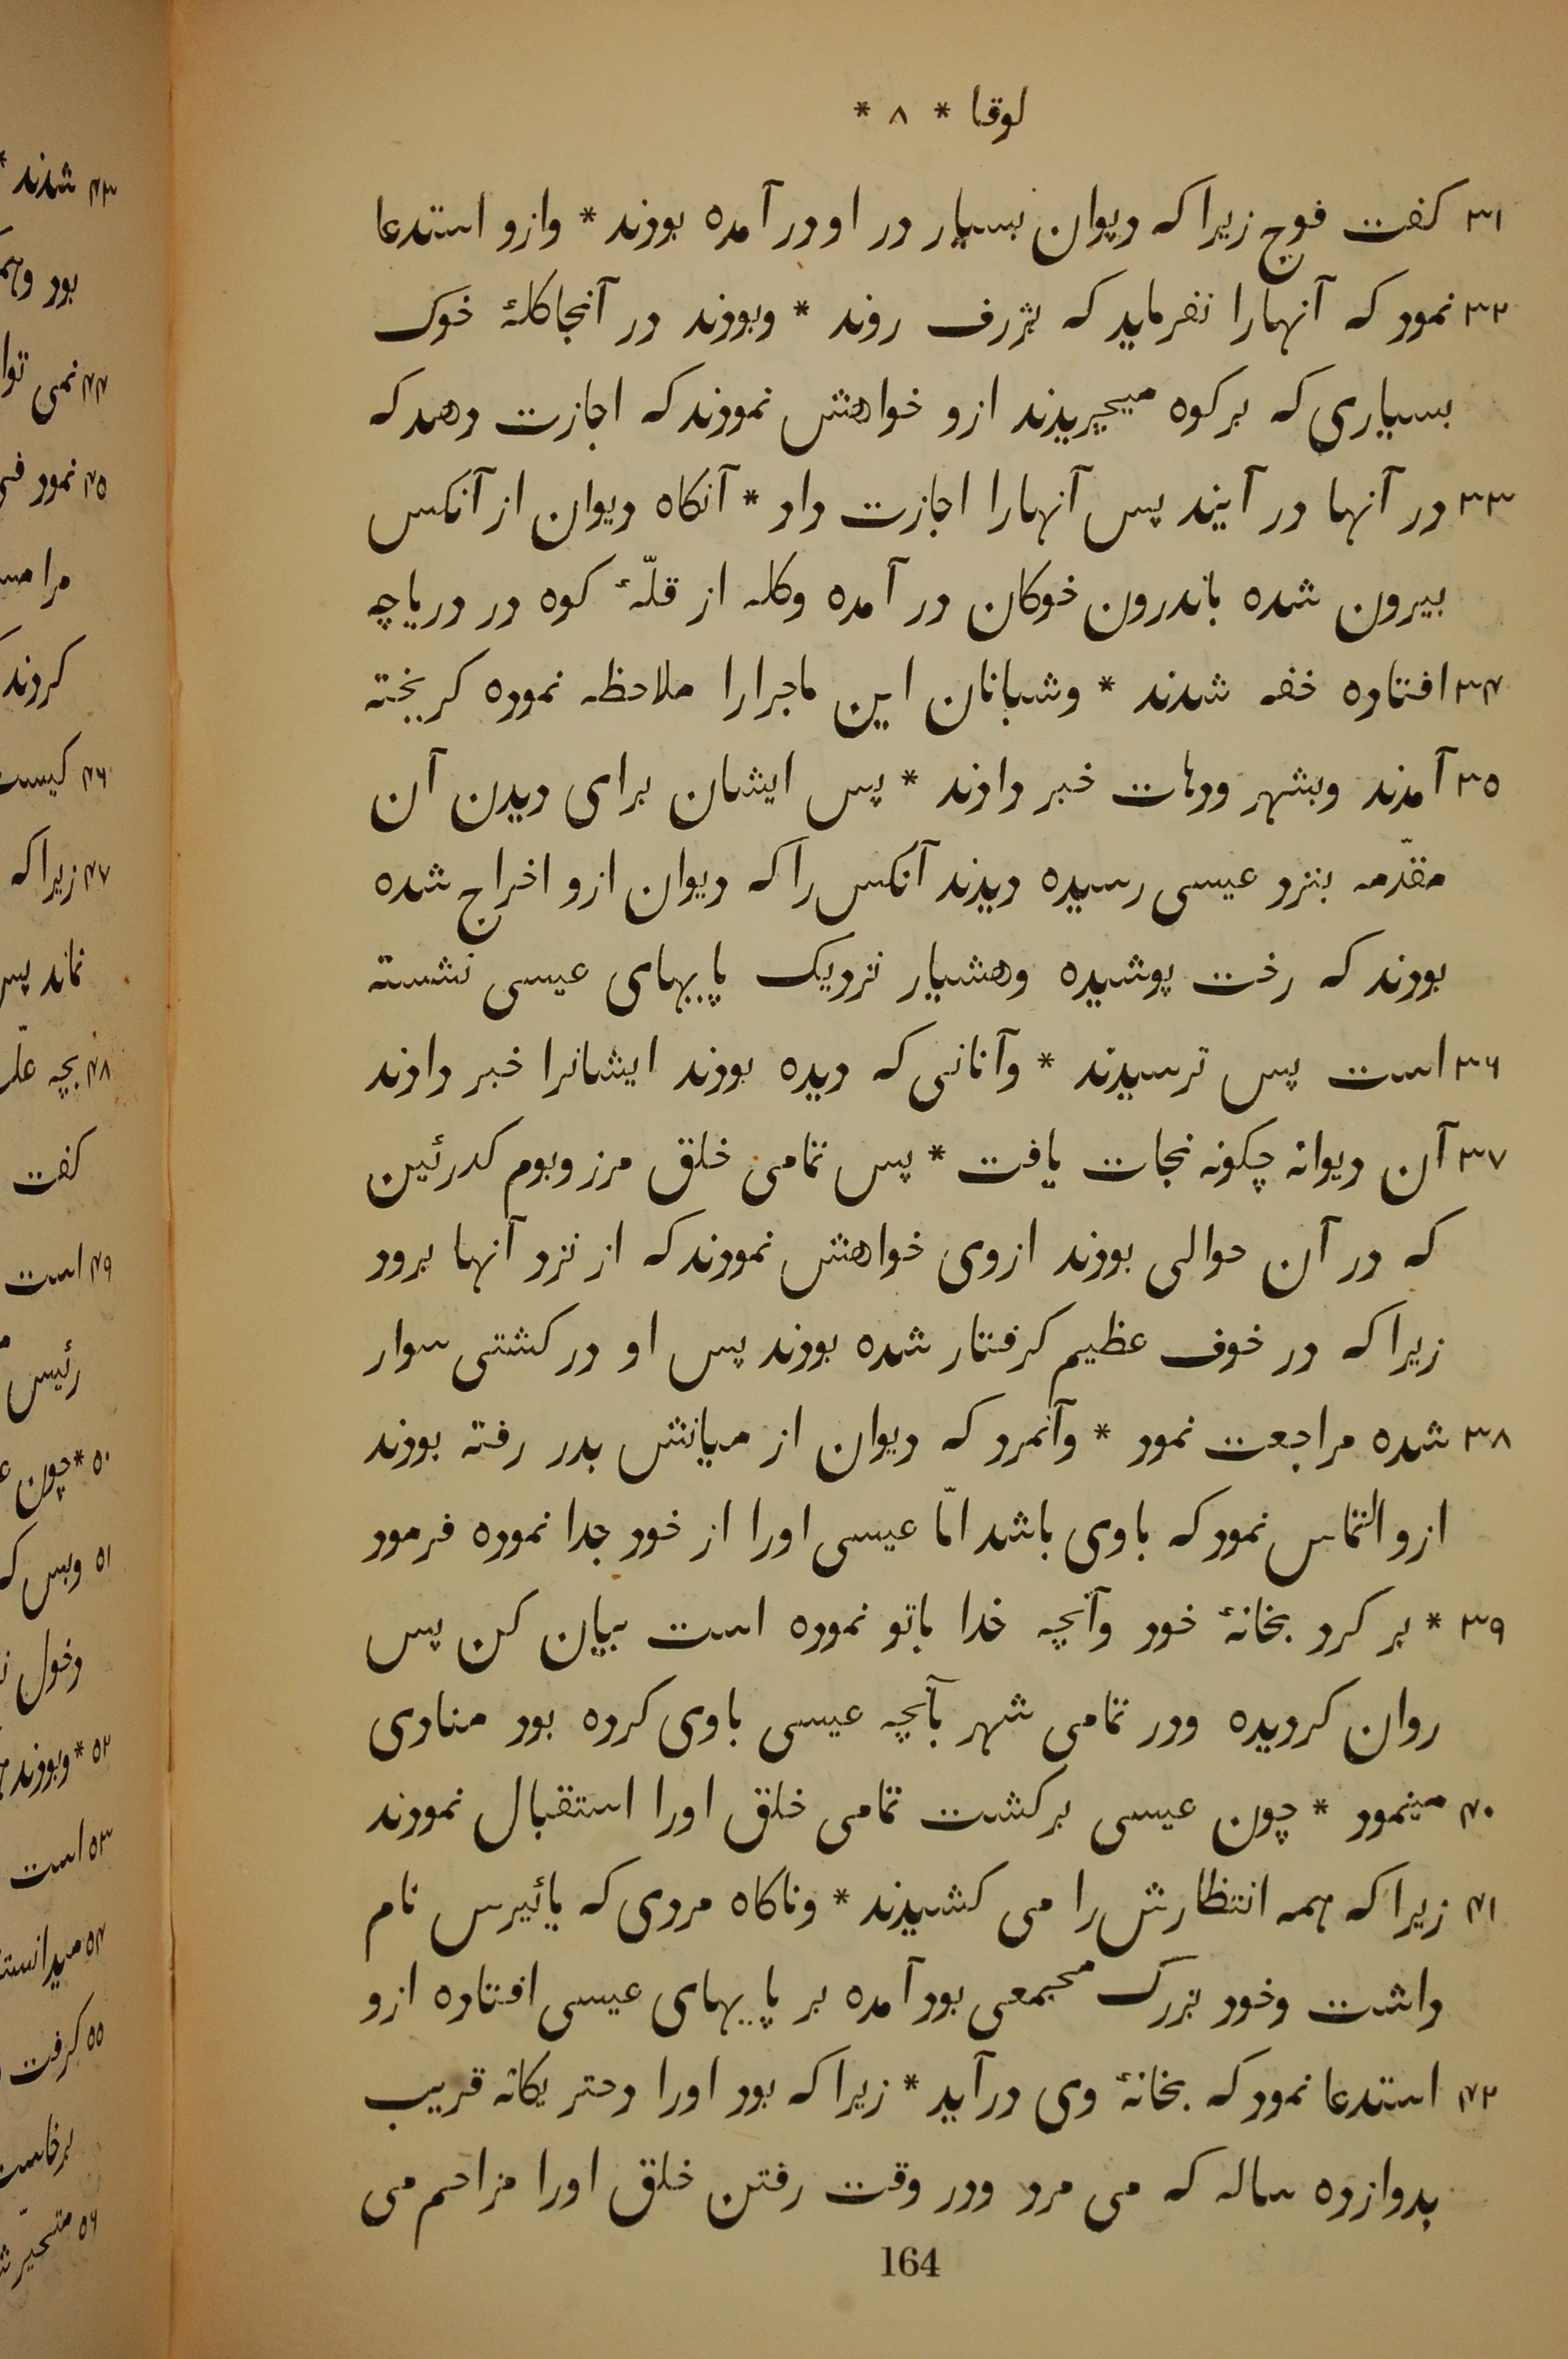 لوقا * ٨ *
٣١ کفت فوج زیرا که دیوان بسیار در او در آمده بودند * وازو استدعا
٣٢ نمود که آنهارا نفرماید که بژرف روند * وبودند در آنجا کلهٔ خوک
بسیاری که بر کوه میچریدند ازو خواهش نمودند که اجازت دهد که
٣٣ در آنها در آیند پس آنهارا اجازت داد * آنکاه دیوان از آنکس
بیرون شده باندرون خوکان در آمده وکله از قلّهٔ کوه در دریاچه
٣٤ افتاده خفه شدند * وشبانان این ماجرارا ملاحظه نموده کریخته
٣٥ آمدند وبشهر ودهات خبر دادند * پس ایشان برای دیدن آن
مقدّمه بنزد عیسی رسیده دیدند آنکس را که دیوان ازو اخراج شده
بودند که رخت پوشیده وهشیار نزدیک پایهای عیسی نشسته
٣٦ است پس ترسیدند * وآنانی که دیده بودند ایشانرا خبر دادند
٣٧ آن دیوانه چکونه نجات یافت * پس تمامی خلق مرز وبوم کدرئین
که در آن حوالی بودند ازوی خواهش نمودند که از نزد آنها برود
زیرا که در خوف عظیم کرفتار شده بودند پس او در کشتی سوار
٣٨ شده مراجعت نمود * وآنمرد که دیوان از میانش بدر رفته بودند
ازو التماس نمود که باوی باشد امّا عیسی اورا از خود جدا نموده فرمود
٣٩ * بر کرد بخانهٔ خود وآنچه خدا باتو نموده است بیان کن پس
روان کردیده ودر تمامی شهر بآنچه عیسی باوی کرده بود منادی
٤٠ مینمود * چون عیسی برکشت تمامی خلق اورا استقبال نمودند
٤١ زیرا که همه انتظارش را می کشیدند * وناکاه مردی که یائیرس نام
داشت وخود بزرک مجمعی بود آمده بر پایهای عیسی افتاده ازو
٤٢ استدعا نمود که بخانهٔ وی در آید * زیرا که بود اورا دختر یکانه قریب
بدوازده ساله که می مرد ودر وقت رفتن خلق اورا مزاحم می
164
٤٣ شدند *
بود
٤٤ نمی
٤٥ نمود
مرا
کردند
٤٦ کیست
٤٧ زیرا که
نماند پس
٤٨ بچه
کفت
٤٩ است
رئیس
٥٠ * چون
٥١ وبس
دخول
٥٢ * وبودند
٥٣ است
٥٤
٥٥ کرفت
٥٦